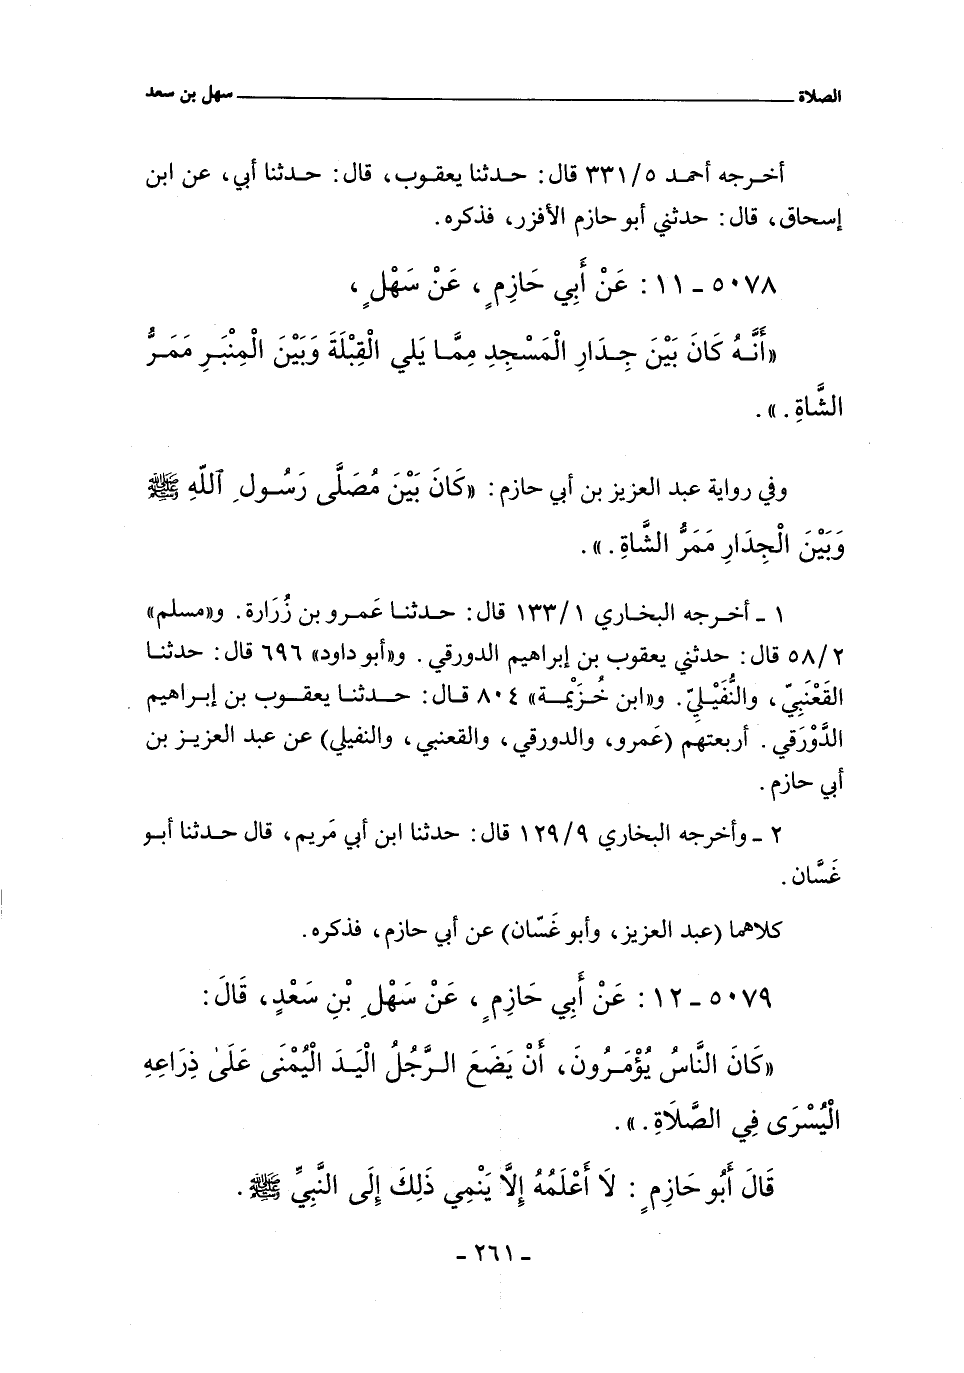 الصلاة ـــــــ سهل بن سعد
أخرجه أحمد ٣٣١/٥ قال: حدثنا يعقوب، قال: حدثنا أبي، عن ابن
إسحاق، قال: حدثني أبو حازم الأفزر، فذكره.
٥٠٧٨ ـ ١١: عَنْ أَبِي حَازِمٍ، عَنْ سَهْلٍ،
«أَنَّهُ كَانَ بَيْنَ جِدَارِ الْمَسْجِدِ مِمَّا يَلي الْقِبْلَةَ وَبَيْنَ الْمِنْبَرِ مَمَرُّ
الشَّاةِ.».
وفي رواية عبد العزيز بن أبي حازم: «كَانَ بَيْنَ مُصَلَّى رَسُولِ ٱللّهِ ﷺ
وَبَيْنَ الْجِدَارِ مَمَرُّ الشَّاةِ.».
١ ـ أخرجه البخاري ١٣٣/١ قال: حدثنا عَمرو بن زُرَارة. و«مسلم»
٥٨/٢ قال: حدثني يعقوب بن إبراهيم الدورقي. و«أبو داود» ٦٩٦ قال: حدثنا
القَعْنَبِيّ، والنُّفَيْلِيّ. و«ابن خُزَيْمة» ٨٠٤ قال: حدثنا يعقوب بن إبراهيم
الدَّوْرَقي. أربعتهم (عَمرو، والدورقي، والقعنبي، والنفيلي) عن عبد العزيز بن
أبي حازم.
٢ ـ وأخرجه البخاري ١٢٩/٩ قال: حدثنا ابن أبي مَريم، قال حدثنا أبو
غَسَّان.
كلاهما (عبد العزيز، وأبو غَسّان) عن أبي حازم، فذكره.
٥٠٧٩ ـ ١٢: عَنْ أَبِي حَازِمٍ، عَنْ سَهْلِ بْنِ سَعْدٍ، قَالَ:
«كَانَ النَّاسُ يُؤْمَرُونَ، أَنْ يَضَعَ الرَّجُلُ الْيَدَ الْيُمْنَى عَلَىٰ ذِرَاعِهِ
الْيُسْرَى فِي الصَّلَاةِ.».
قَالَ أَبُو حَازِمٍ: لَا أَعْلَمُهُ إِلَّا يَنْمِي ذَلِكَ إِلَى النَّبِيِّ ﷺ.
ـ ٢٦١ ـ